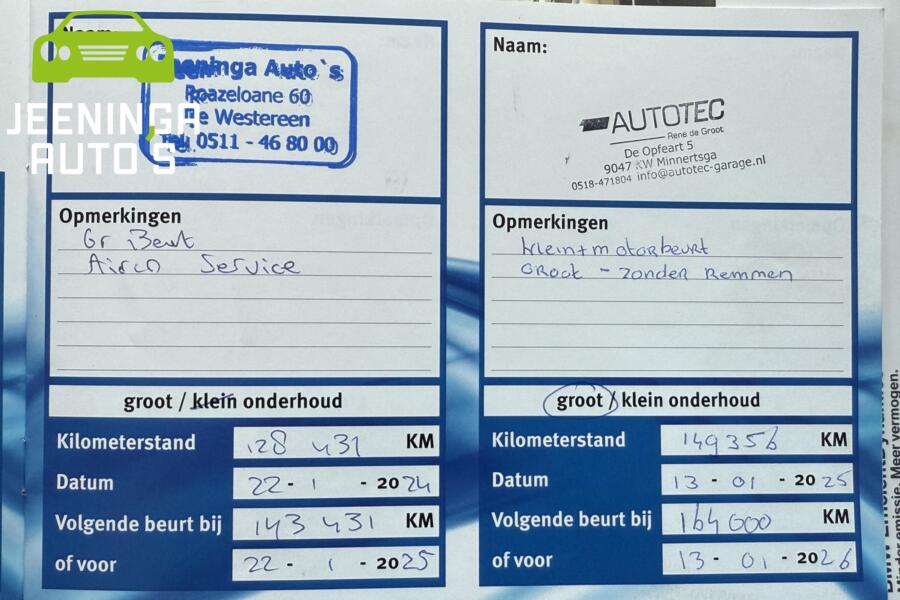 JEENINGA
AUTO'S
Naam:
Jeeninga Auto`s
Roazeloane 60
De Westereen
Tel. 0511 - 46 80 00
Opmerkingen
Gr Beurt
Airco Service
groot / klein onderhoud
Kilometerstand 128 431 KM
Datum 22 - 1 - 2024
Volgende beurt bij 143 431 KM
of voor 22 - 1 - 2025
Naam:
AUTOTEC
René de Groot
De Opfeart 5
9047 KW Minnertsga
0518-471804 info@autotec-garage.nl
Opmerkingen
klein + motorbeurt
Groot - zonder Remmen
groot / klein onderhoud
Kilometerstand 149356 KM
Datum 13 - 01 - 2025
Volgende beurt bij 164000 KM
of voor 13 - 01 - 2026
Minder emissie. Meer vermogen.